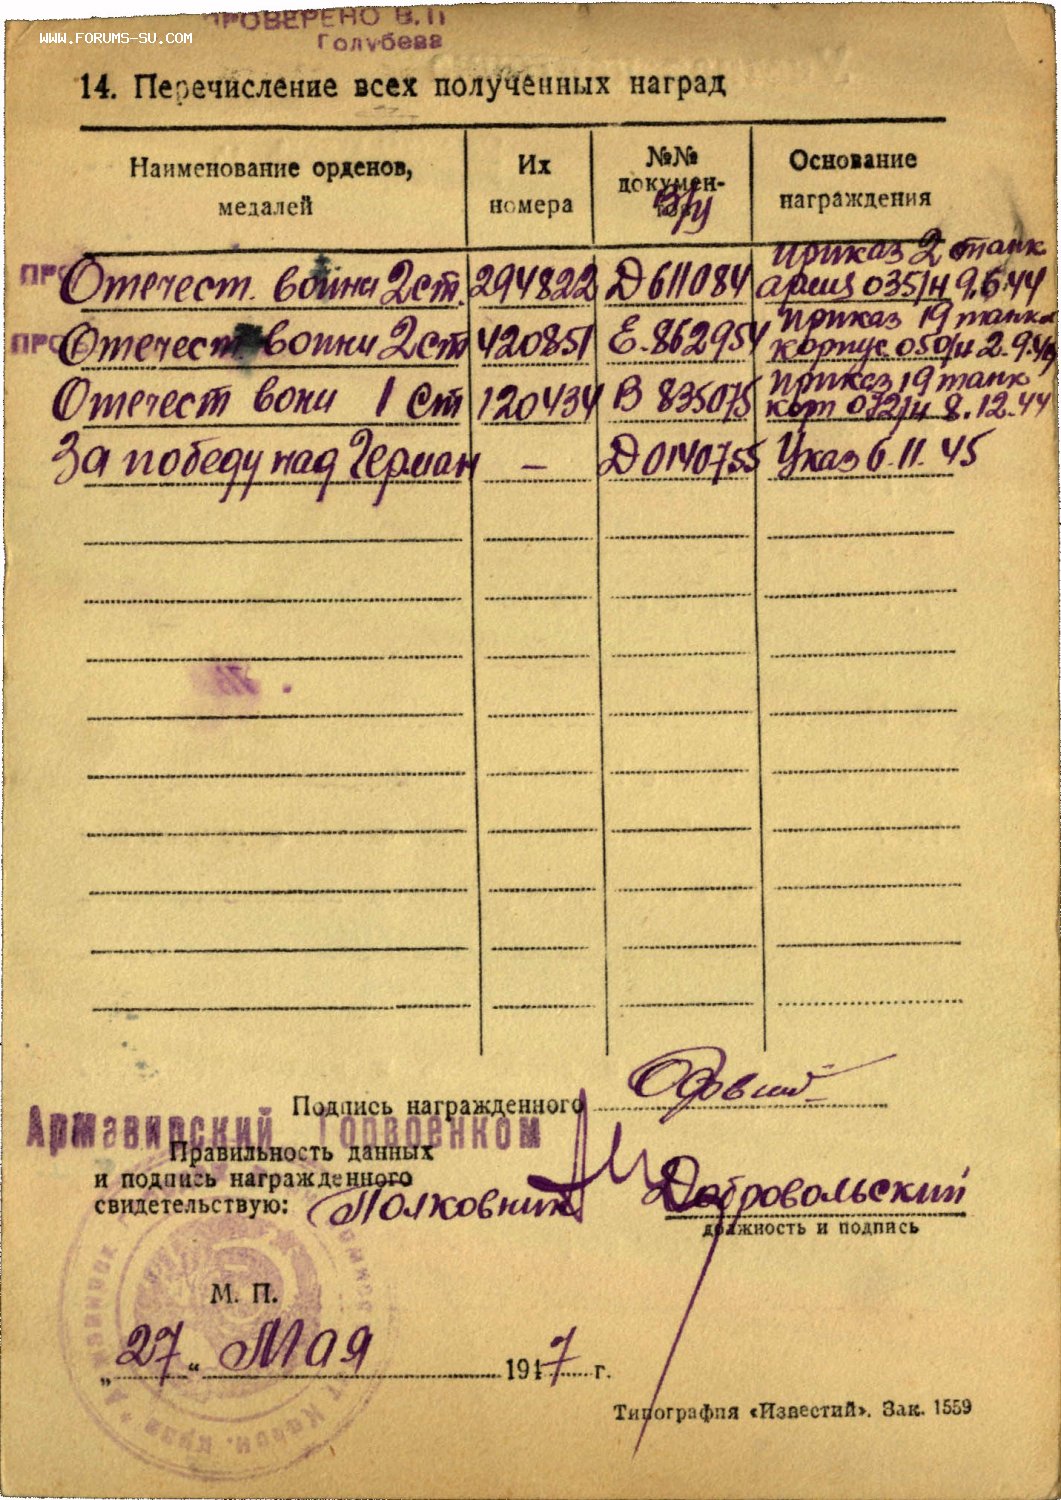 ПРОВЕРЕНО В. П
Голубева
WWW.FORUMS-SU.COM
14. Перечисление всех полученных наград
Наименование орденов, медалей
Их номера
№№ докумен-
Основание награждения
Отечест. войни 2 ст. 294822 Д 611084 приказ 2 танк армия 035/н 9.6.44
Отечест войни 2 ст 420851 Е. 862954 приказ 19 танк корпус 050/н 2.9.44
Отечест вони 1 ст 120434 В 835075 приказ 19 танк корп 072/н 8.12.44
За победу над Герман – Д 0140755 Указ 6.11.45
Подпись награжденного
Армавирский Горвоенком
Правильность данных
и подпись награжденного
свидетельствую: Полковник Добровольский
должность и подпись
М. П.
„27“ Мая 1947 г.
Типография «Известий». Зак. 1559